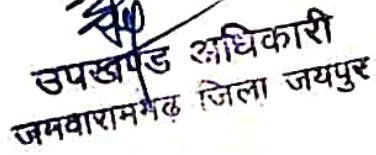 उपखण्ड अधिकारी
जमवारामगढ जिला जयपुर